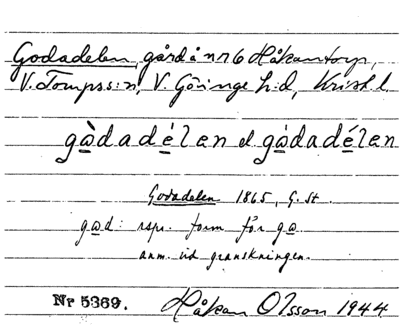 Godadelen, gård å nr 6 Håkantorp,
V. Torups s:n, V. Göinge h:d, Krist l.
gàdadélen el gȧdadélen
Godadelen 1865, G. St.
gad: rspr. form för ga
anm. vid granskningen.
Nr 5369. Håkan Olsson 1944